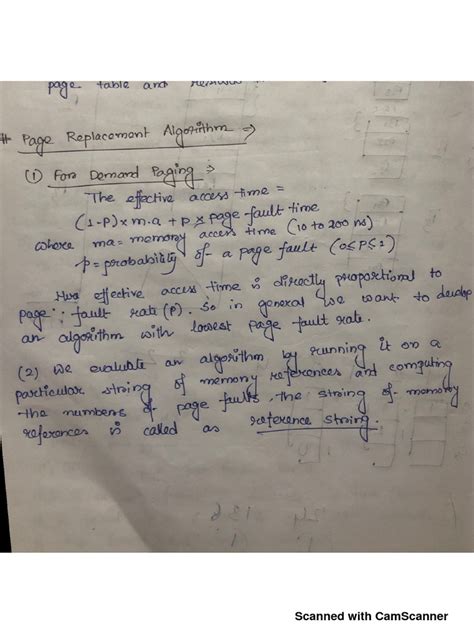 page table and
# Page Replacement Algorithm ⇒
(1) For Demand Paging ⇒
The effective access time =
(1-P) x m.a + P x page fault time
where ma = memory access time (10 to 200 ns)
P = probability of a page fault (0≤P≤1)
effective access time is directly proportional to
page fault rate (P). So in general we want to develop
an algorithm with lowest page fault rate.
(2) We evaluate an algorithm by running it on a
particular string of memory references and computing
the numbers of page faults. the string of memory
references is called as reference string.
Scanned with CamScanner